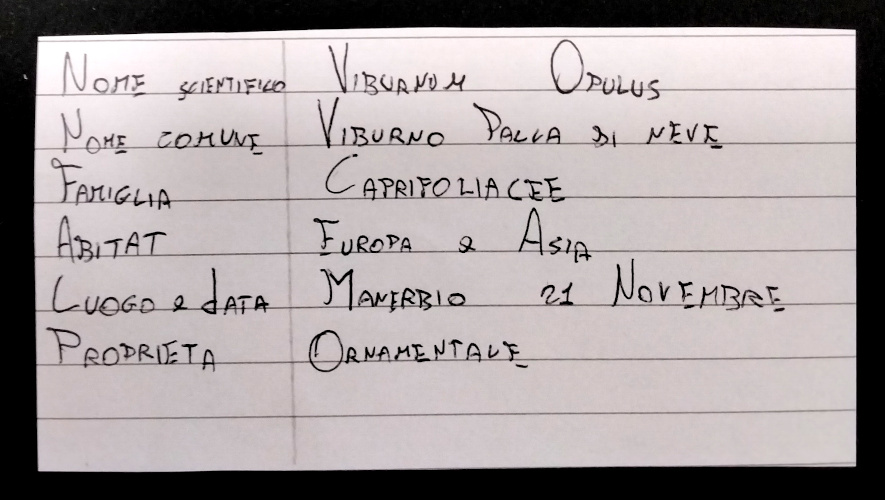 Nome scientifico Viburnum Opulus
Nome comune Viburno Palla di neve
Famiglia Caprifoliacee
Abitat Europa e Asia
Luogo e data Manerbio 21 Novembre
Proprieta Ornamentale